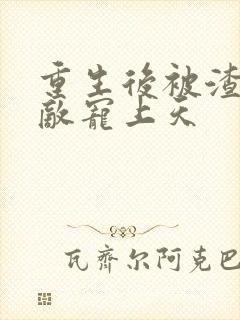 重生後被渣
敵寵上天
瓦齊尔阿克巴